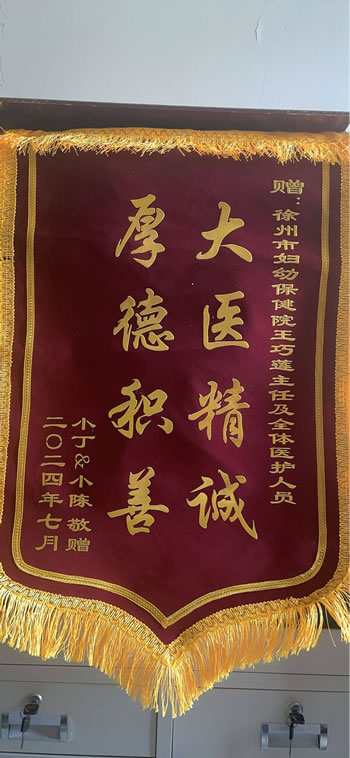 赠：徐州市妇幼保健院王巧莲主任及全体医护人员
大医精诚
厚德积善
小丁&小陈敬赠
二〇二四年七月